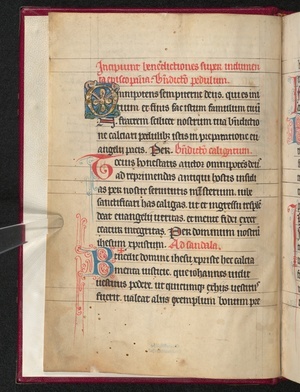 Incipiunt benedictiones super indumen
ta episcopalia. Benedictio pedulum.
Omnipotens sempiterne deus. qui es ini
tium et finis fac istum famulum tuum
fratrem scilicet nostrum tua benedictio
ne calciari pedulibus istis in preparatione eu
angelii pacis. Per. Benedictio caligarum.
Decus honestatis auctor omnipotens deus
ad reprimendas antiqui hostis insidi
as per nostre servitutis ministerium. iube
sanctificari has caligas. ut et ingressui
deat evangelii veritas. et menti fidei
integritas. Per dominum nostrum
ihesum christum. Ad sandalia.
Benedic domine ihesu christe hec calcia
menta iusticie. que iohannes vidit
vestitus podere. ut quicumque
fuerit. valeat aliis exemplum bonum pre